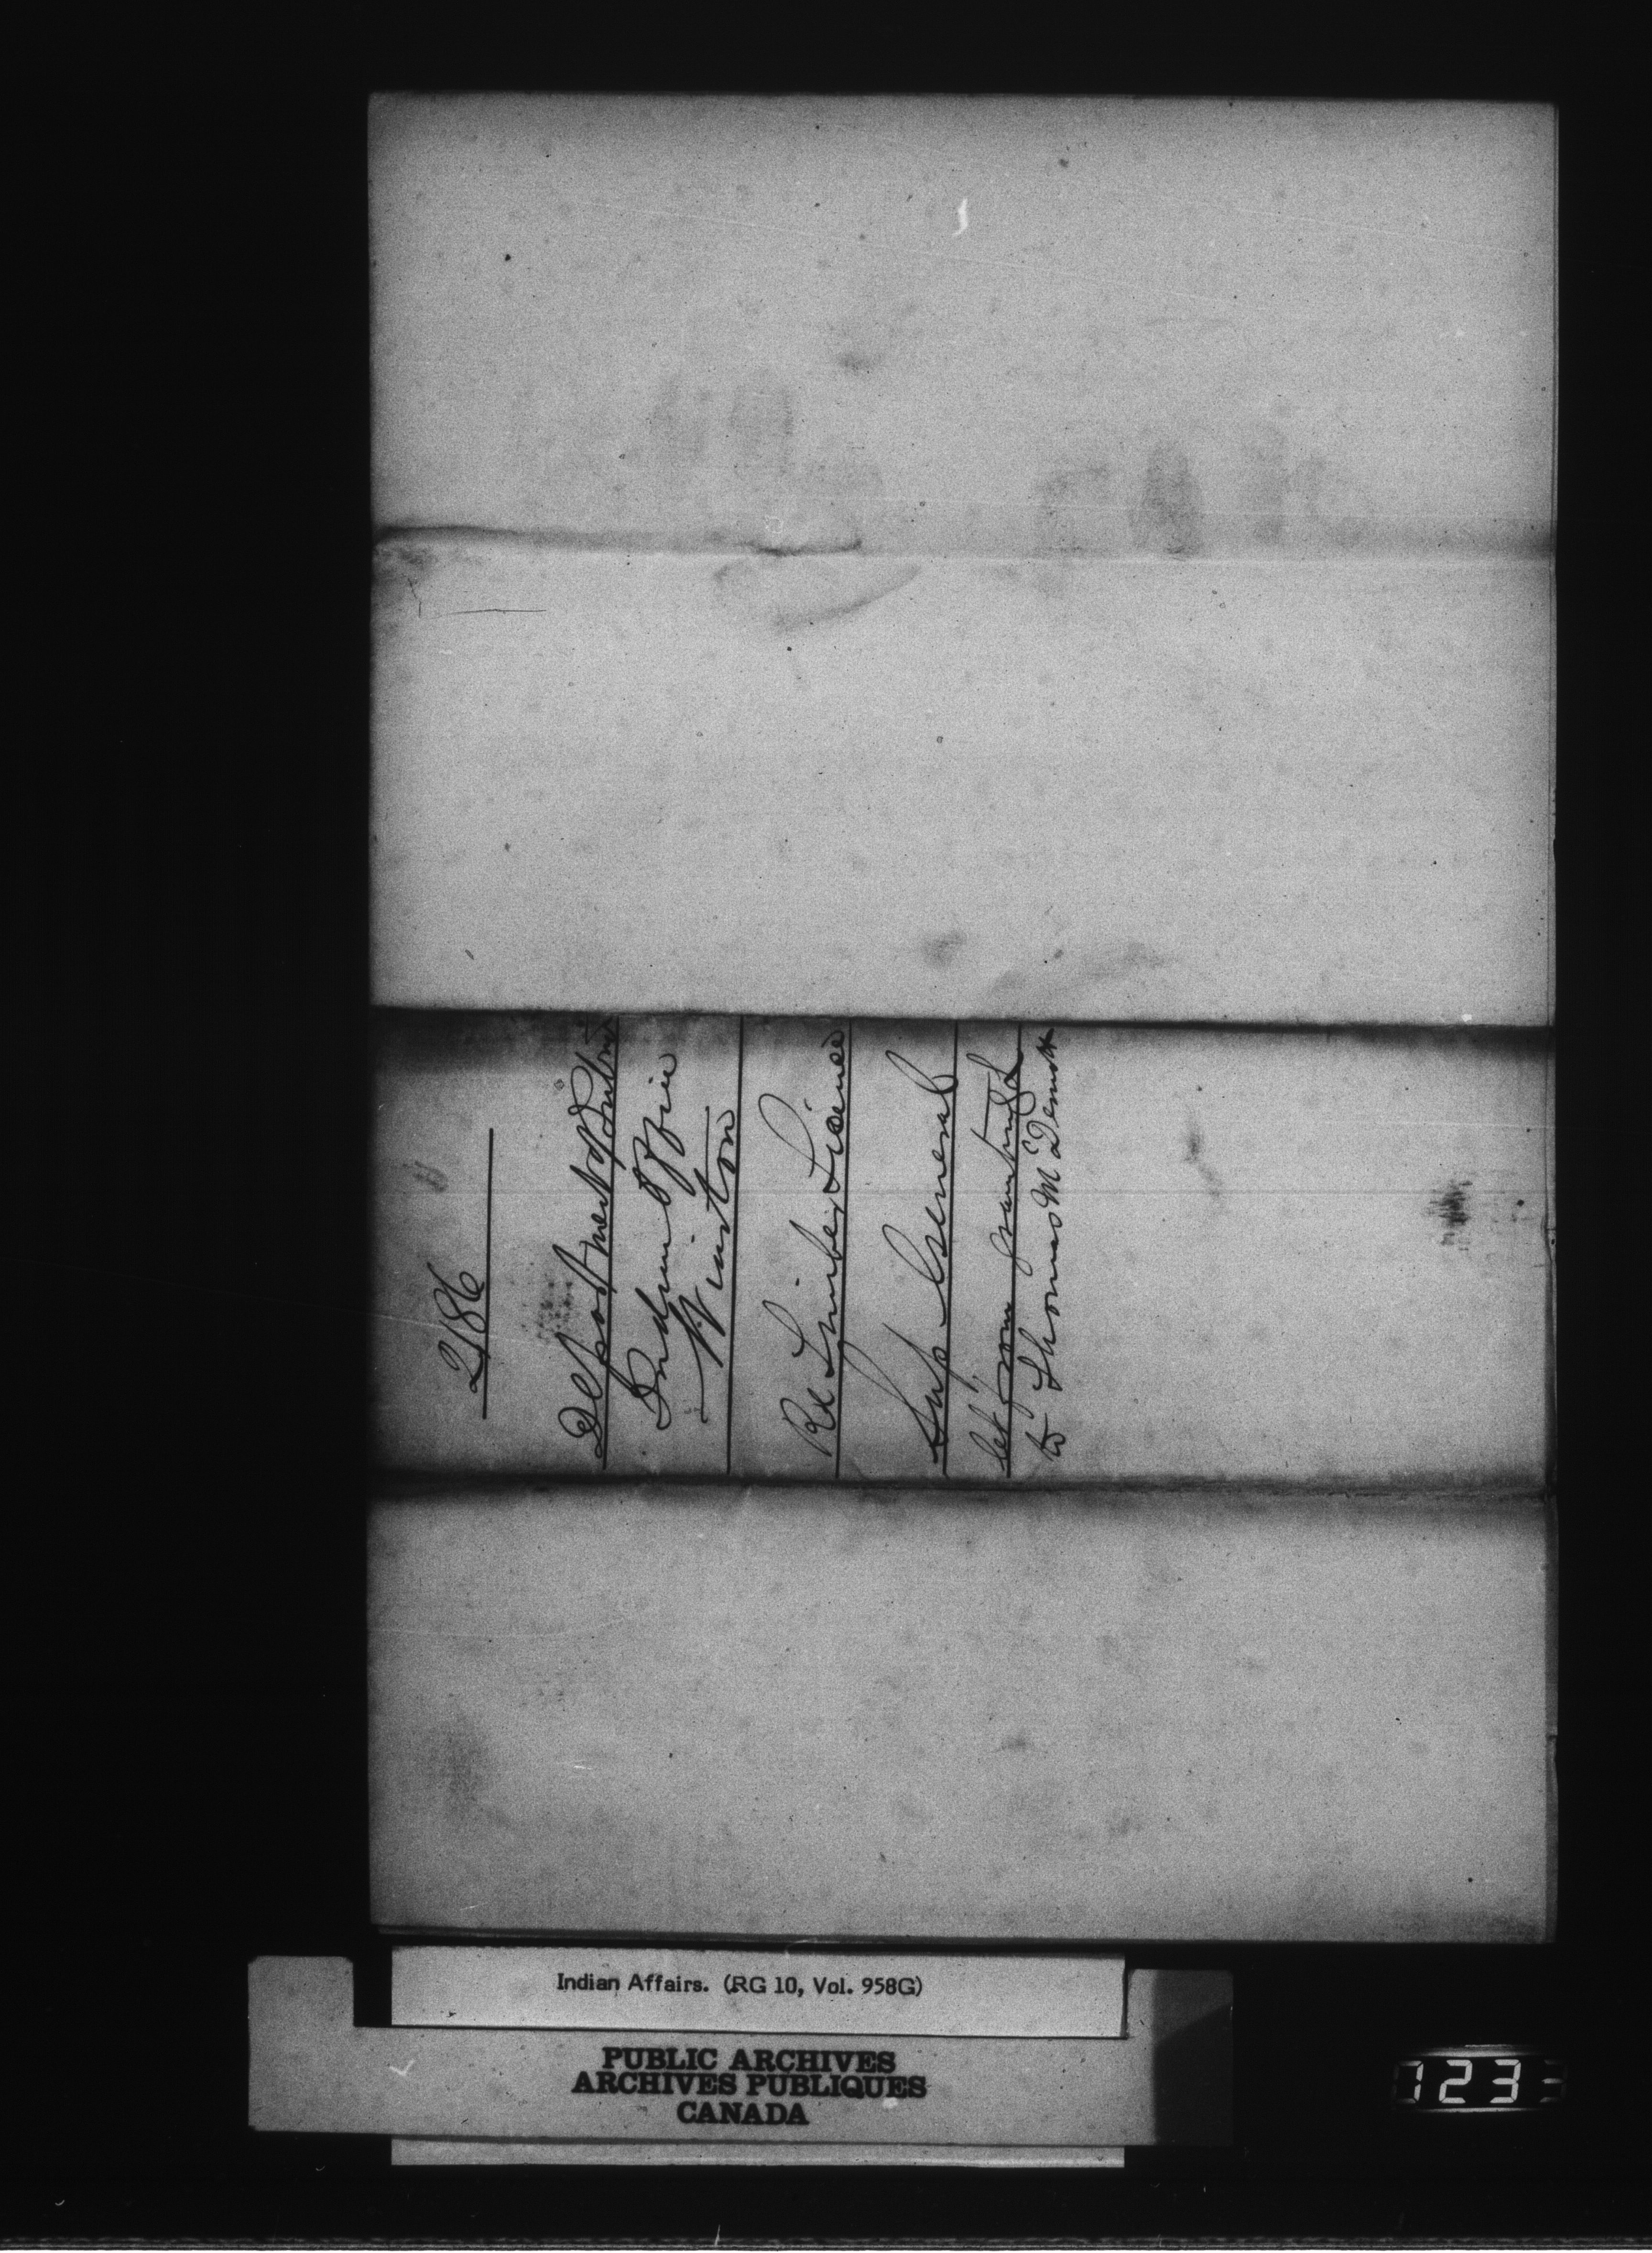 2186
Department of Interior
Indian Office
Winston
Re Timber License
Sup General
let some granted
to Thomas McDermott
Indian Affairs. (RG 10, Vol. 958G)
PUBLIC ARCHIVES
ARCHIVES PUBLIQUES
CANADA
1233